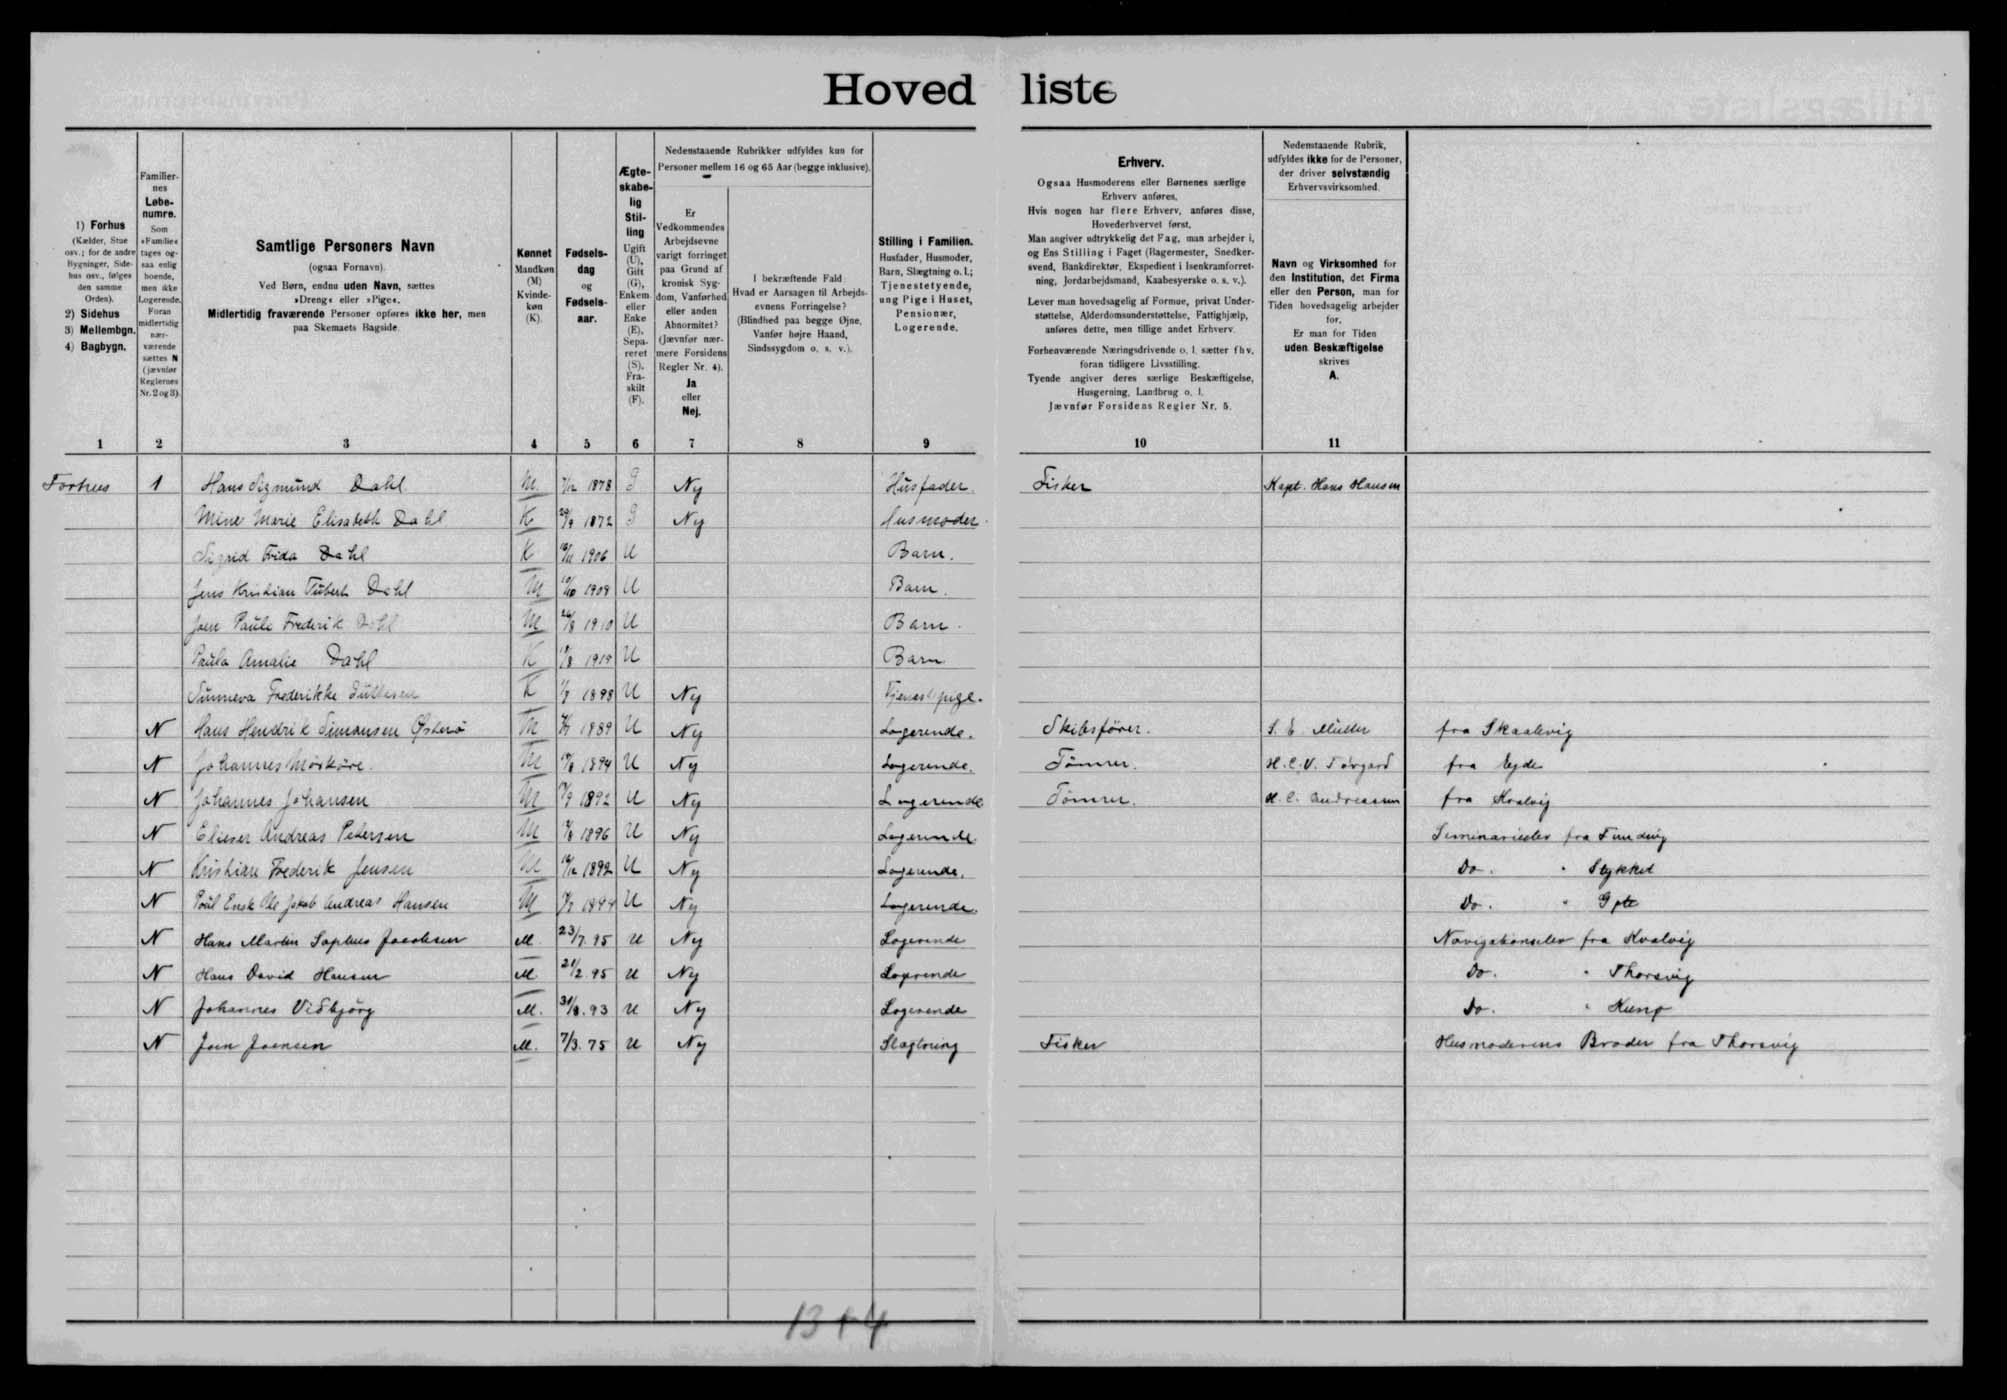 Hovedliste
1) Forhus
(Kælder, Stue
osv.; for de andre
Bygninger, Side-
hus osv., følges
den samme
Orden).
2) Sidehus
3) Mellembgn.
4) Bagbygn.
Familier-
nes
Løbe-
numre.
Som
»Familie«
tages og-
saa enlig
boende,
men ikke
Logerende.
Foran
midlertidig
nær-
værende
sættes N
(jævnfør
Reglernes
Nr. 2 og 3).
Samtlige Personers Navn
(ogsaa Fornavn).
Ved Børn, endnu uden Navn, sættes
»Dreng« eller »Pige«.
Midlertidig fraværende Personer opføres ikke her, men
paa Skemaets Bagside.
Kønnet
Mandkøn
(M)
Kvinde-
køn
(K).
Fødsels-
dag
og
Fødsels-
aar.
Ægte-
skabe-
lig
Stil-
ling
Ugift
(U),
Gift
(G),
Enkem.
eller
Enke
(E),
Sepa-
reret
(S),
Fra-
skilt
(F).
Nedenstaaende Rubrikker udfyldes kun for
Personer mellem 16 og 65 Aar (begge inklusive).
Er
Vedkommendes
Arbejdsevne
varigt forringet
paa Grund af
kronisk Syg-
dom, Vanførhed
eller anden
Abnormitet?
(Jævnfør nær-
mere Forsidens
Regler Nr. 4).
Ja
eller
Nej.
I bekræftende Fald:
Hvad er Aarsagen til Arbejds-
evnens Forringelse?
(Blindhed paa begge Øjne,
Vanfør højre Haand,
Sindssygdom o. s. v.).
Stilling i Familien.
Husfader, Husmoder,
Barn, Slægtning o. l.;
Tjenestetyende,
ung Pige i Huset,
Pensionær,
Logerende.
Erhverv.
Ogsaa Husmoderens eller Børnenes særlige
Erhverv anføres.
Hvis nogen har flere Erhverv, anføres disse,
Hovederhvervet først.
Man angiver udtrykkelig det Fag, man arbejder i,
og Ens Stilling i Faget (Bagermester, Snedker-
svend, Bankdirektør, Ekspedient i Isenkramforret-
ning, Jordarbejdsmand, Kaabesyerske o. s. v.).
Lever man hovedsagelig af Formue, privat Under-
støttelse, Alderdomsunderstøttelse, Fattighjælp,
anføres dette, men tillige andet Erhverv.
Forhenværende Næringsdrivende o. l. sætter fhv.
foran tidligere Livsstilling.
Tyende angiver deres særlige Beskæftigelse,
Husgerning, Landbrug o. l.
Jævnfør Forsidens Regler Nr. 5.
Nedenstaaende Rubrik,
udfyldes ikke for de Personer,
der driver selvstændig
Erhvervsvirksomhed.
Navn og Virksomhed for
den Institution, det Firma
eller den Person, man for
Tiden hovedsagelig arbejder
for.
Er man for Tiden
uden Beskæftigelse
skrives
A.
1 2 3 4 5 6 7 8 9 10 11
Forhus 1 Hans Sigmund Dahl. M. 7/12 1878 G Nej Husfader. Fisker Kapt. Hans Hansen
Mine Marie Elisabeth Dahl K 29/9 1872 G Nej Husmoder
Sigrid Frida Dahl K 1906 U Barn.
Jens Kristian Dahl M 10/10 1908 U Barn.
Joen Pauli Frederik Dahl M 26/8 1910 U Barn.
Paula Amalie Dahl K U Barn
Sunneva Frederikke K 1898 U Nej Tjenestpige.
N Hans Hendrik Simonsen Østerø M 1889 U Nej Logerende. Skibsfører. S. E. Müller fra Skaalevig
N Johannes Mørkøre. M 1894 U Nej Logerende. Tömrer. H. C. V. fra Ejde
N Johannes Johansen M 1892 U Nej Logerende Tömrer. H. C. Andreassen fra Kvalvig
N Elieser Andreas Petersen M 1896 U Nej Logerende. Seminarieelev fra Funding
N Kristian Frederik Jensen M 1892 U Nej Logerende. Do. " Stykket
N Poul Ole Jakob Andreas Hansen M 1894 U Nej Logerende. Do. " Gøte
N Hans Martin Sophus Jacobsen M. 23/7. 95 U Nej Logerende Navigationselev fra Kvalvig
N Hans David Hansen M 21/2. 95 U Nej Logerende Do. " Thorsvig
N Johannes Vidbjørg M. 31/8. 93 U Nej Logerende Do. " Kunø
N Joen Joensen M. 7/3. 75 U Nej Slægtning Fisker Husmoderens Broder fra Thorsvig
13+4